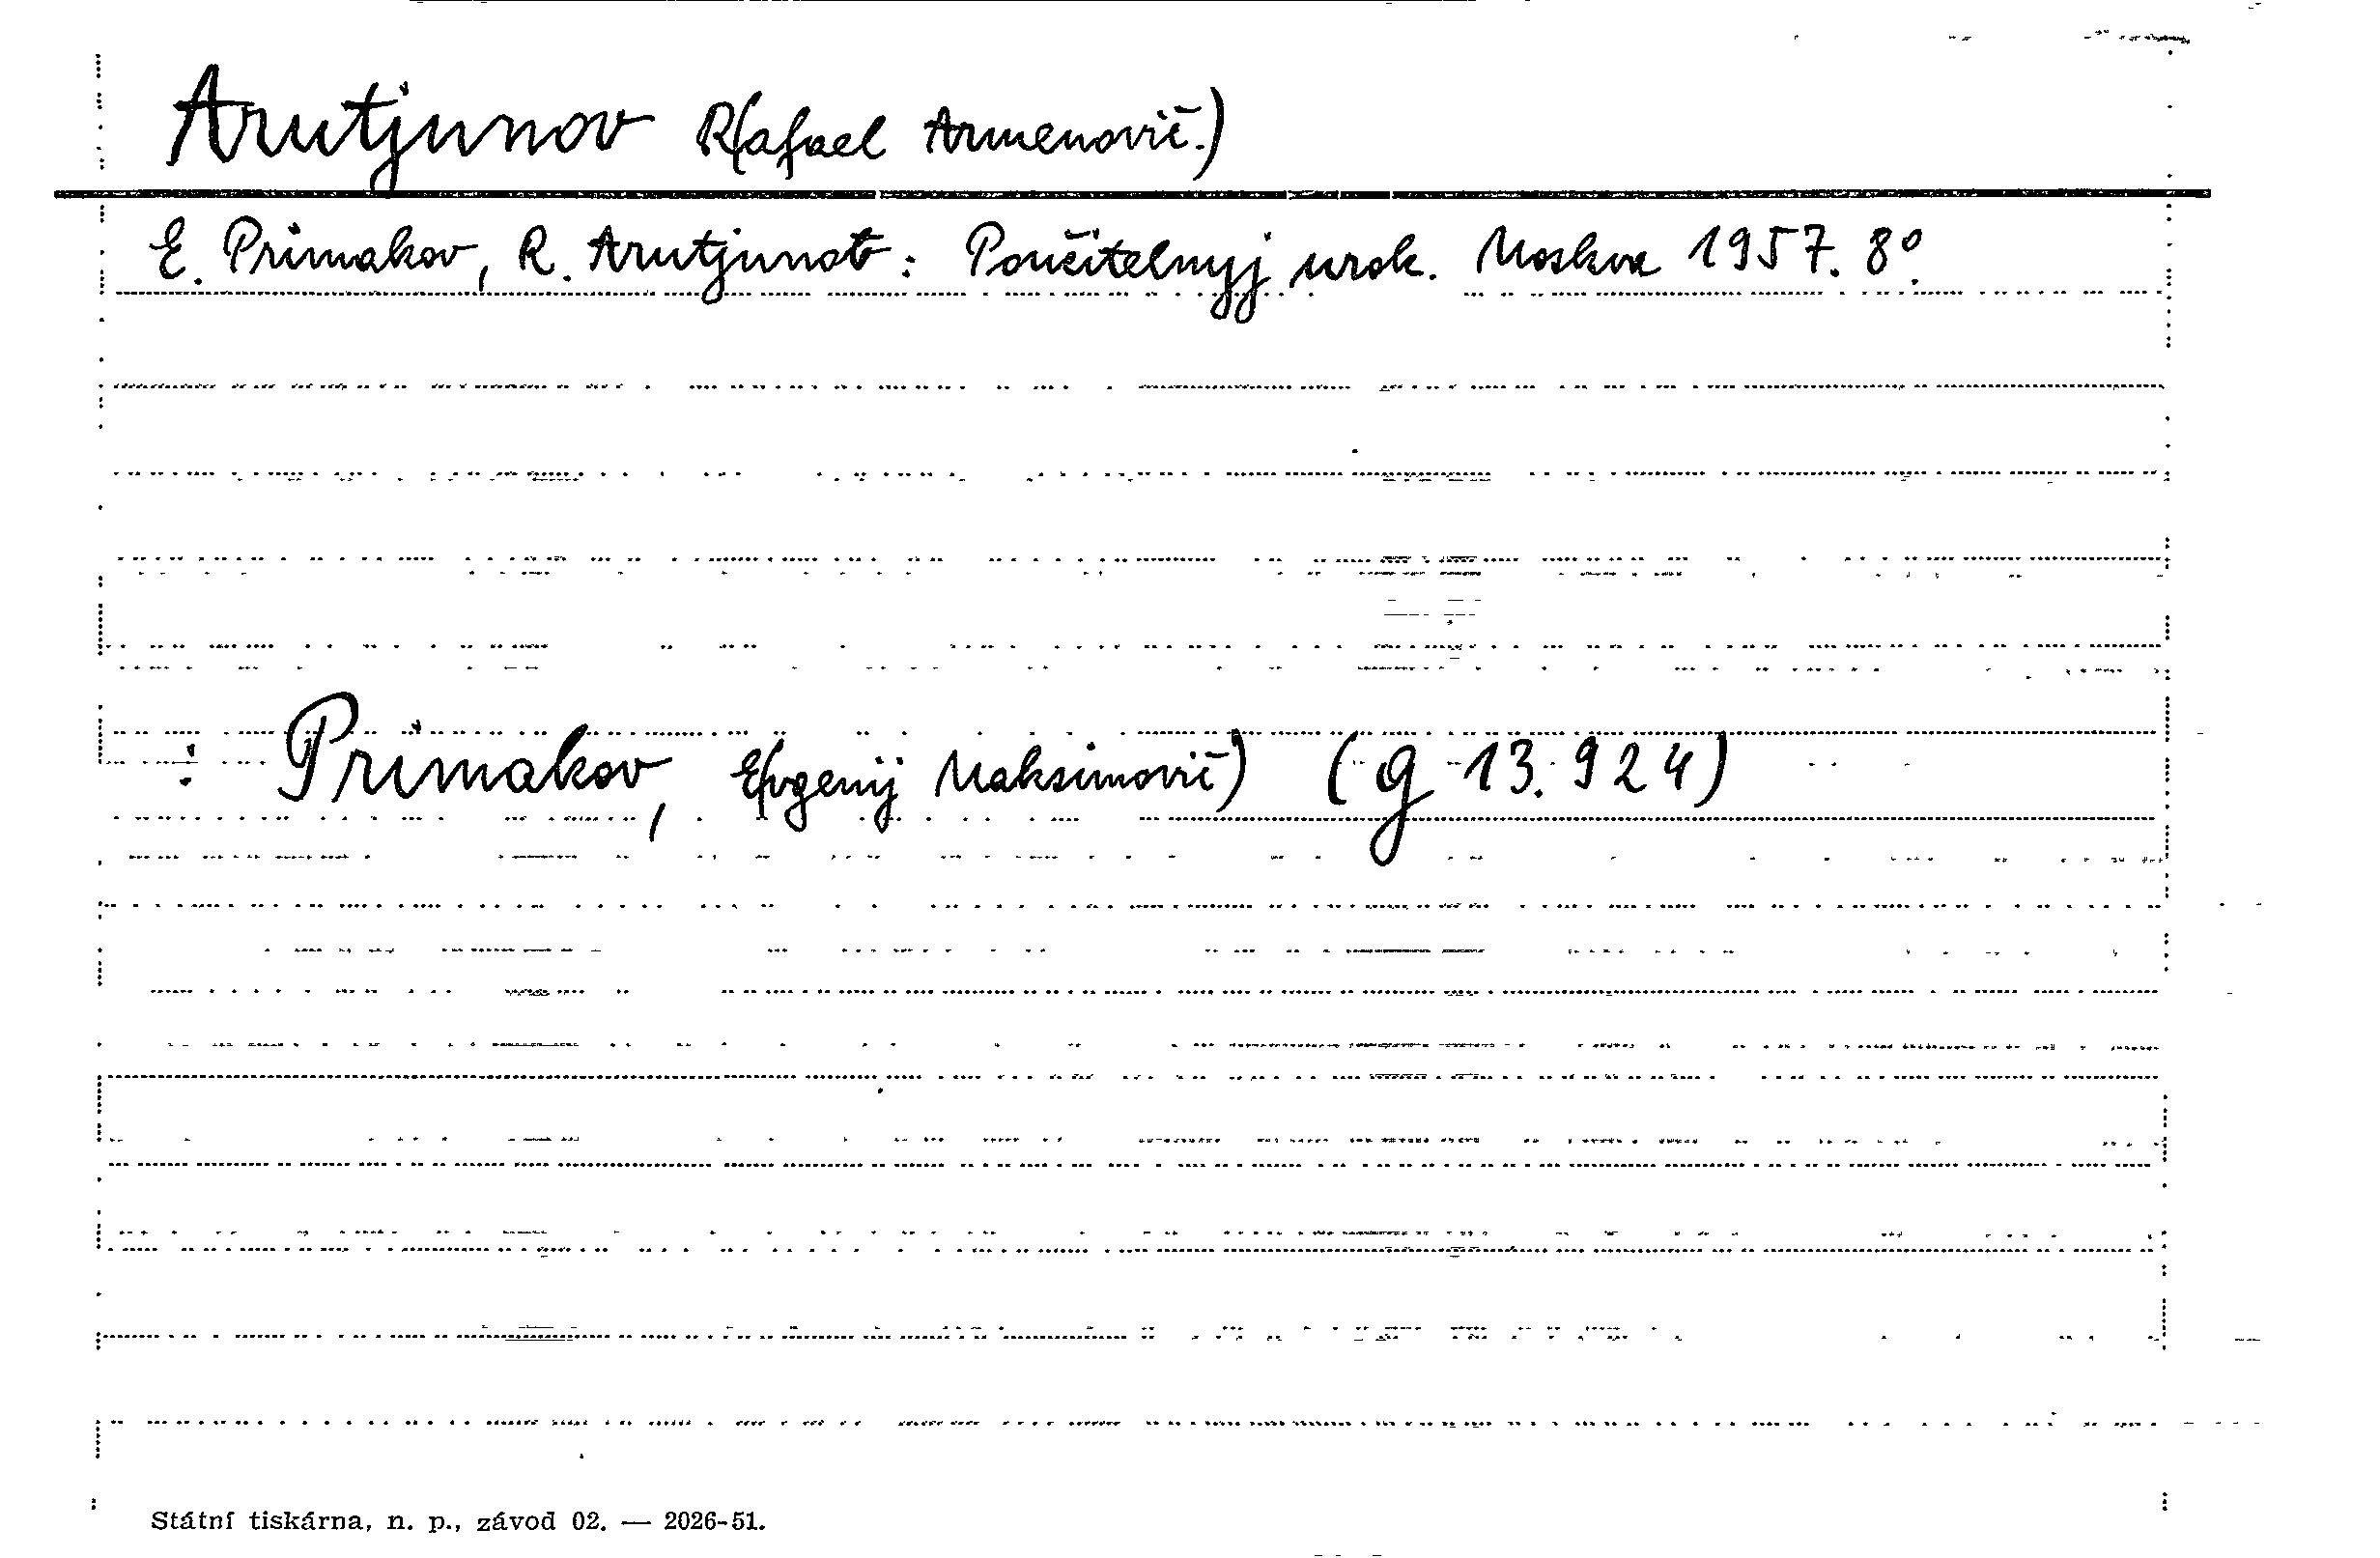 Arutjunov R(afael Armenovič.)
E. Primakov, R. Arutjunov: Poučitelnyj urok. Moskva 1957. 8°.
: Primakov, E(vgenij Maksimovič) (g 13.924)
Státní tiskárna, n. p., závod 02. — 2026-51.